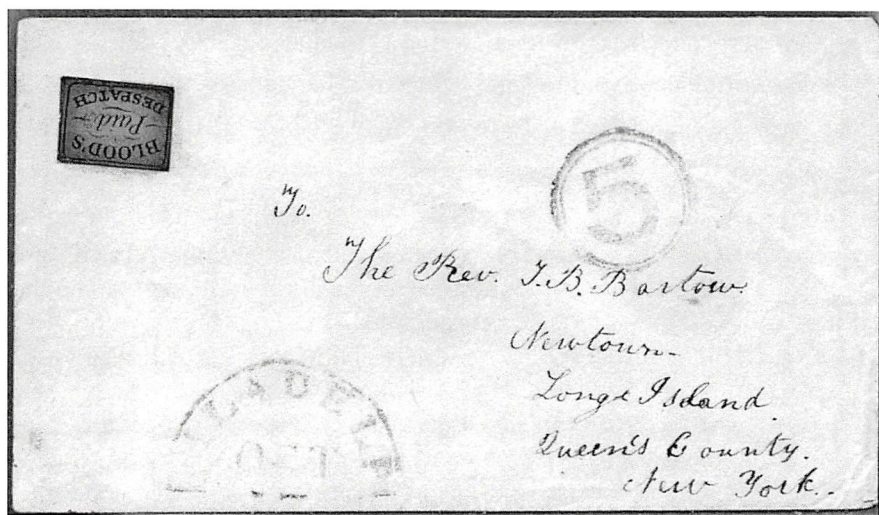 BLOOD'S
Paid
DESPATCH
5
To.
The Rev. T.B. Bartow.
Newtown-
Long Island.
Queen's County.
New York.